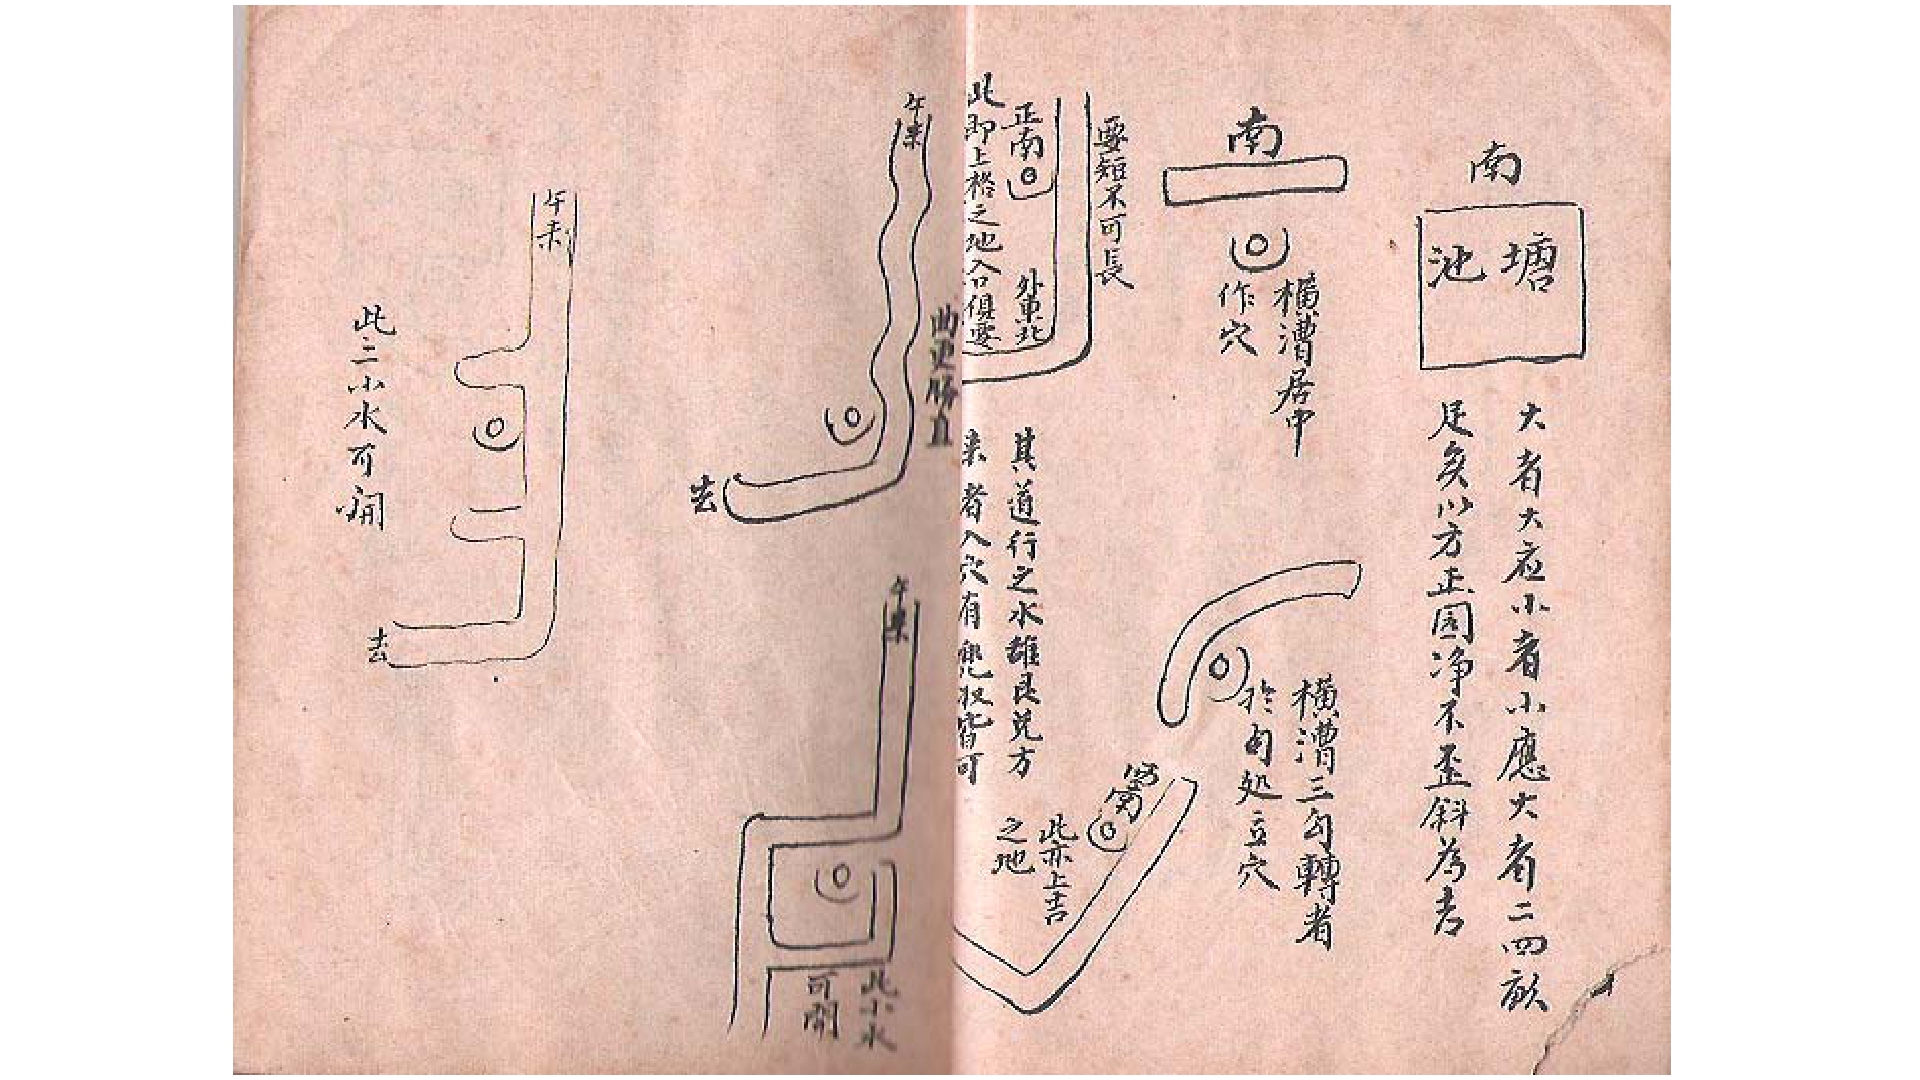 南
塘池
大者大应小者小應大者二四畝
足矣以方正圆净不歪斜為吉
南
橫漕居中
作穴
橫漕三勾轉者
於勾处立穴
要短不可長
正南
外東北
此即上格之地入口俱要
其道行之水雖艮兌方
来者入穴有皆可
西南
此亦上吉
之地
曲更勝直
午来
去
午来
此小水
可開
午来
去
此二小水可開